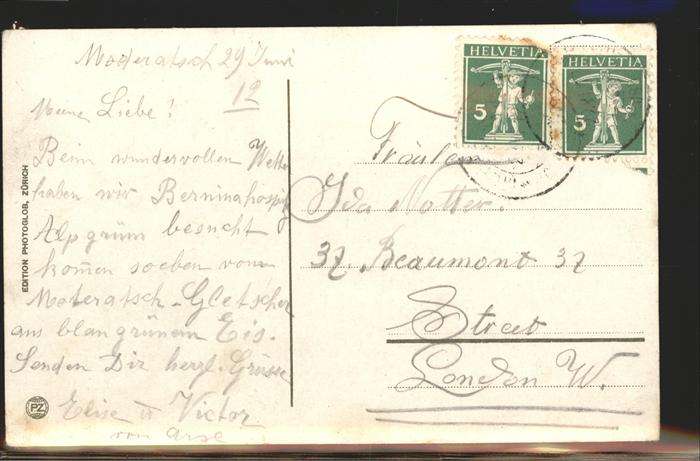 Moderatsch 29 Juni
12
Meine Liebe!
Beim wundervollen Wetter
haben wir Berninahospiz
Alp grüm besucht
kom̄en soeben vom
Moteratsch-Gletscher
aus blau grünem Eis.
Senden Dir herzl. Grüsse
Elise u Victor
von
EDITION PHOTOGLOB, ZÜRICH
PZ
HELVETIA
5
HELVETIA
5
Fräulein
Ida Notter.
37 Beaumont 37
Street
London W.